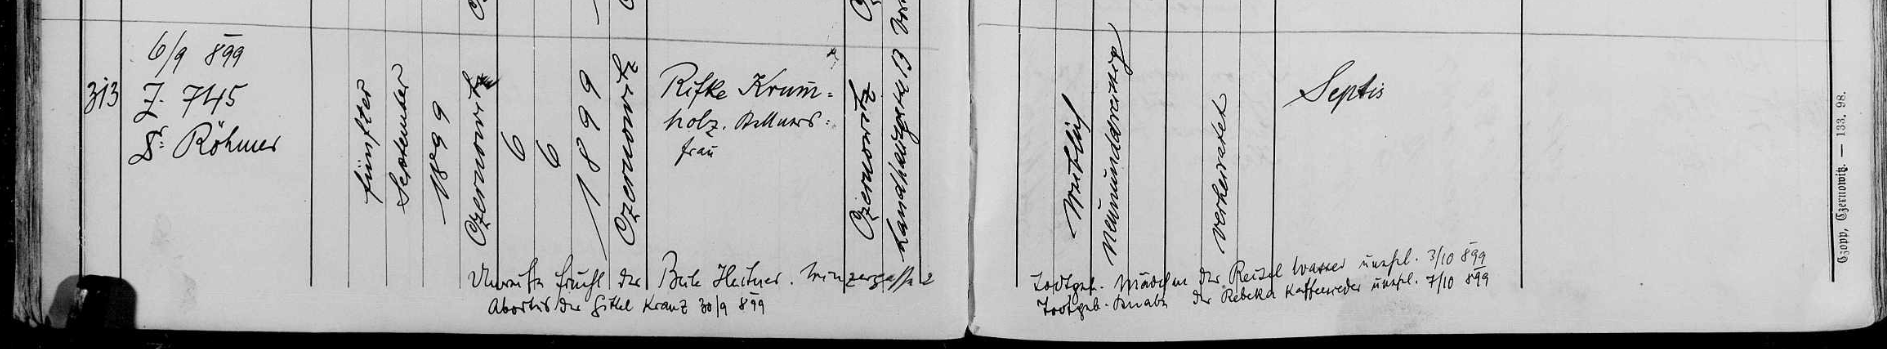 313
6/9 899
Z. 745
Dr. Röhmer
fünfter
September
1899
Czernowitz
6
6
1899
Czernowitz
Rifke Krum=
holz.
frau
Czernowitz
13
weiblich
Neununddreissig
verheiratet
Septis
Unreife Frucht der Beile Heitner. Winzergasse 2
Abortus der Gittel Kranz 30/9 899
Todtgeb. Mädchen der Reisel Wasser 3/10 899
Todtgeb. Knabe der Rebeka 7/10 899
Czopp, Czernowitz. — 133. 98.